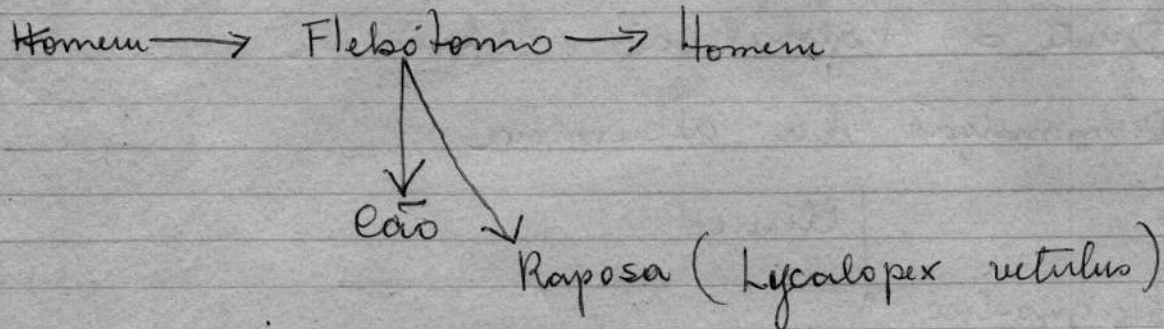 Homem → Flebótomo → Homem
Cão
Raposa (Lycalopex vetulus)